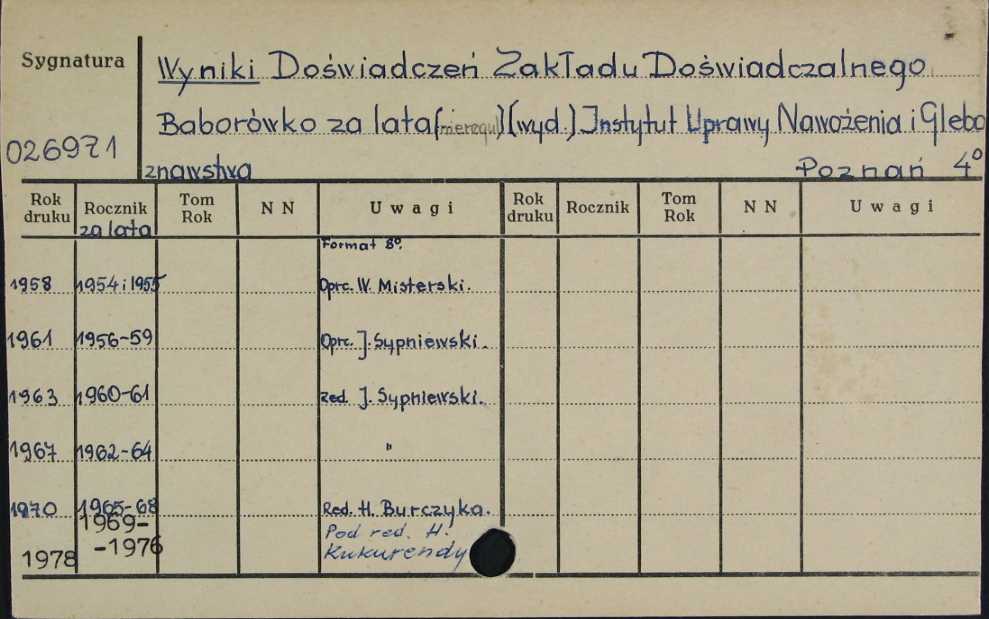 Sygnatura
Wyniki Doświadczeń Zakładu Doświadczalnego
Baborówko za lata (nieregul) (wyd.) Instytut Uprawy Nawożenia i Glebo
026971
znawstwa Poznań 4°
Rok druku Rocznik Tom Rok N N Uwagi Rok druku Rocznik Tom Rok N N Uwagi
za lata
Format 8°.
1958 1954 i 1955 Oprc. W. Misterski.
1961 1956-59 Oprc. J. Sypniewski.
1963 1960-61 Red. J. Sypniewski.
1967 1962-64 "
1970 1965-68 Red. H. Burczyka.
1969- Pod red. H.
1978 -1976 Kukurendy